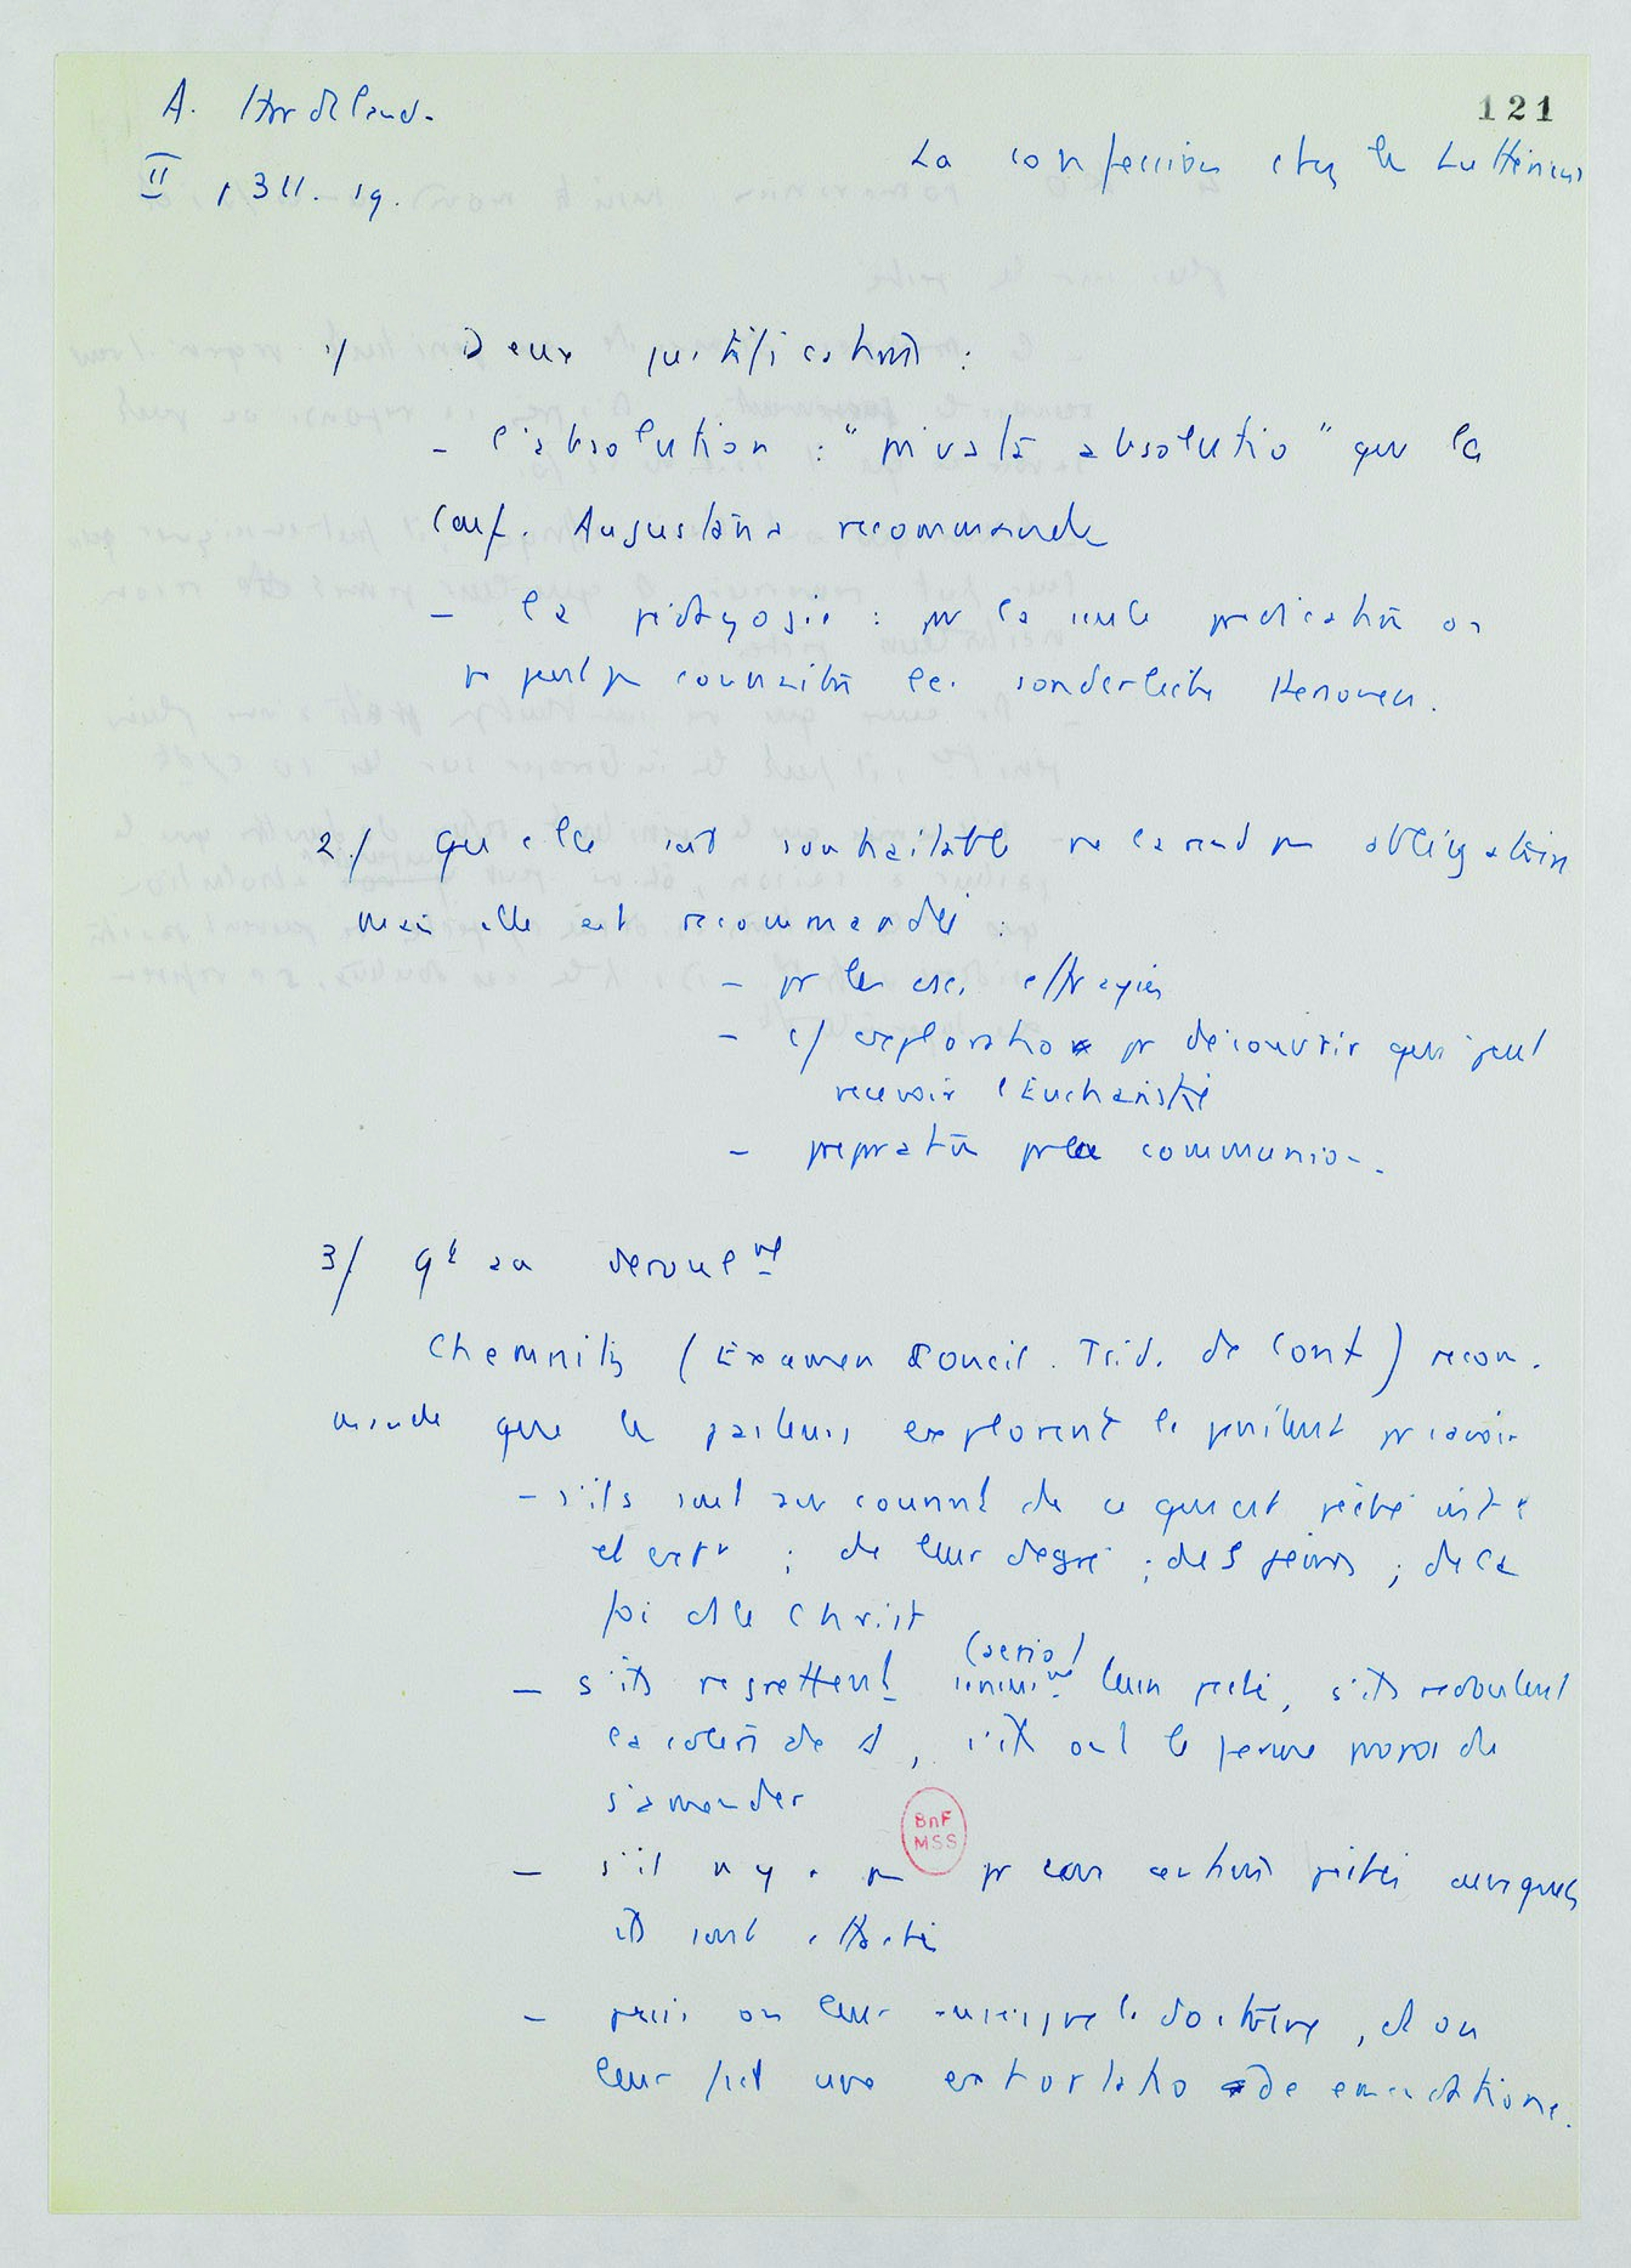 A. Hardeland.
121
La confession chez les Luthériens
II p 311. 19.
1/ Deux justifications :
- l'absolution : "privata absolutio" que la
Conf. Augustana recommande
- la pédagogie : pr la seule prédication on
ne peut pas connaître les sonderliche Personen.
2/ Qu'elle soit souhaitable ne la rend pas obligatoire
mais elle est recommandée :
- pr les csc. effrayées
- c/ exploratio pr découvrir qui peut
recevoir l'Eucharistie
- prepratio pr la communion.
3/ Qt à sa deroulemt
Chemnitz (Examen Concil. Trid. de Conf) recom-
mande que les pasteurs explorent les pénitents pr savoir
- s'ils sont au courant de ce qui est péché intr
et extr ; de leur degré ; des peines ; de la
foi ds le Christ
(serio)
- s'ils regrettent leurs péchés, s'ils redoutent
la colère de d, s'ils ont le ferme propos de
s'amender
BnF
MSS
- s'il n'y a pas certains péchés auxquels
ils sont
- puis on leur enseigne la doctrine, et on
leur fait une exhortatio de emendatione.